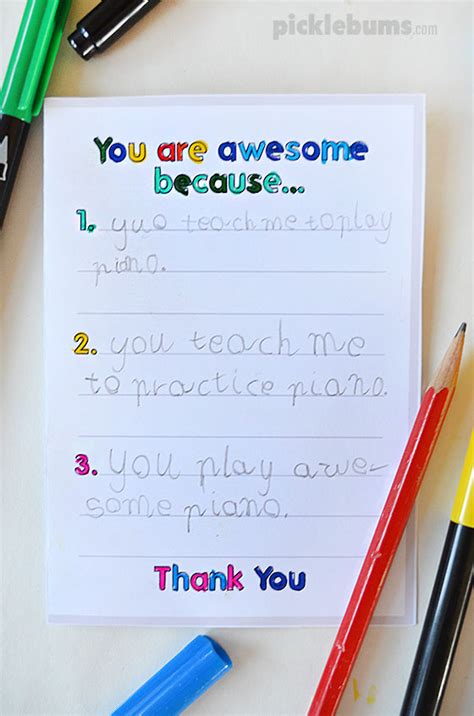 picklebums.com
You are awesome
because...
1. yuo teach me to play
piano.
2. you teach me
to practice piano.
3. you play awe-
some piano.
Thank You